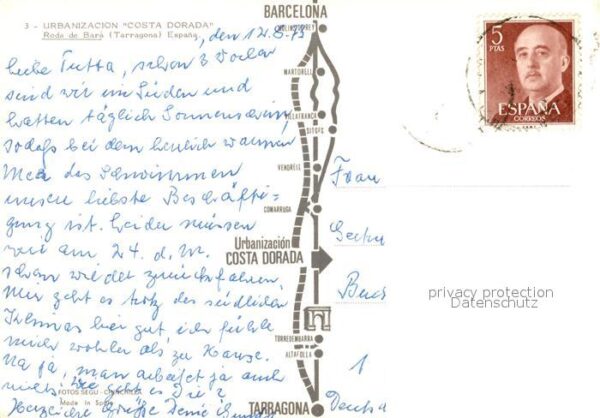 3 - URBANIZACION "COSTA DORADA"
Roda de Bará (Tarragona) España
BARCELONA
MARTORELL
VILLAFRANCA
SITGES
VENDRELL
COMARRUGA
Urbanización
COSTA DORADA
TORREDEMBARRA
ALTAFULLA
TARRAGONA
5
PTAS
ESPAÑA
CORREOS
, den 12.8.73
Liebe Jutta, schon 3 Wochen
sind wir im Süden und
hatten täglich Sonnenschein,
sodass bei dem herrlich warmen
Meer das Schwimmen
unsere liebste Beschäfti=
gung ist. Leider müssen
wir am 24. d. M.
schon wieder zurückfahren.
Mir geht es trotz des südlichen
Klimas hier gut, ich fühle
mich wohler als zu Hause.
Na ja, man arbeitet ja auch
nichts. Wie geht es Dir?
Herzliche Grüße Deine
FOTOS SEGU - CHINCHILLA
Made in Spain
Frau
1
privacy protection
Datenschutz